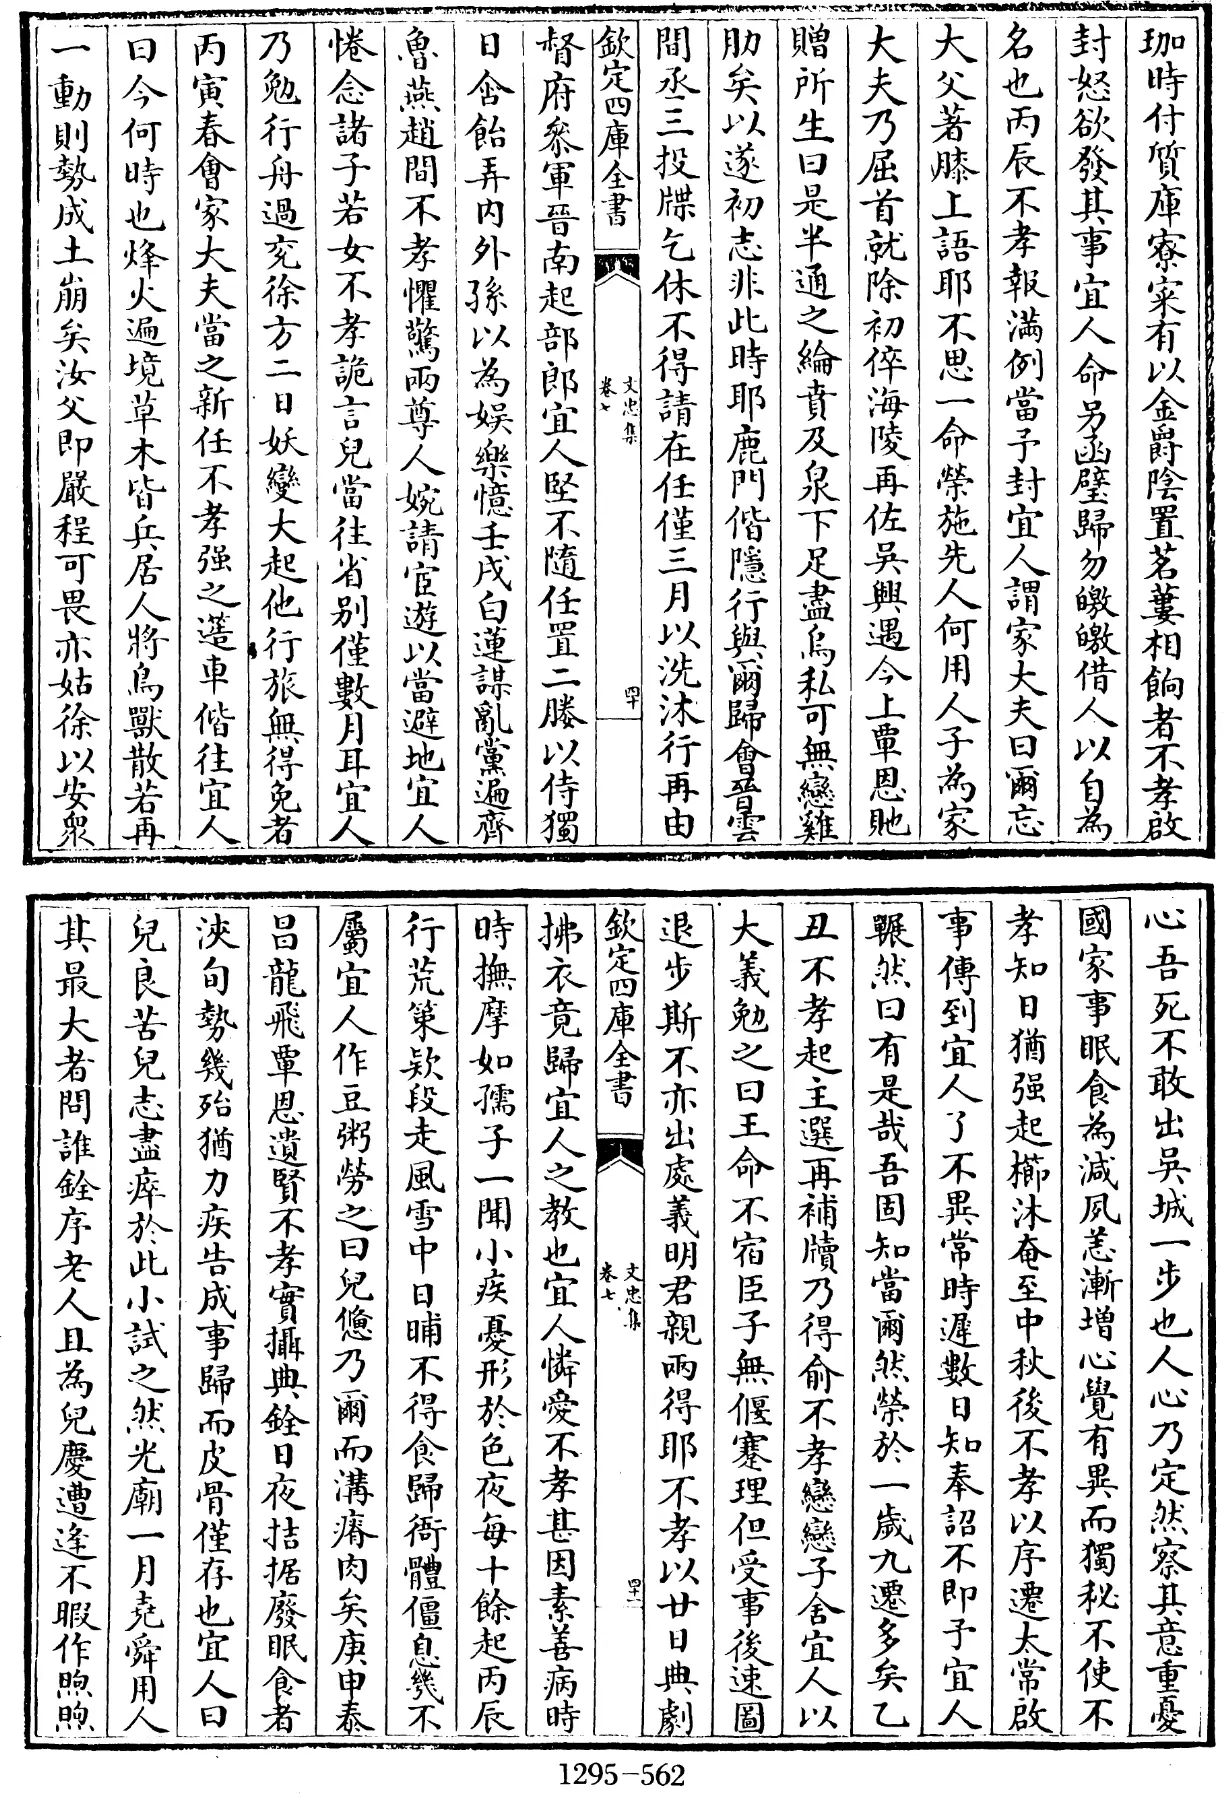 珈時付質庫寮寀有以金爵陰置茗蔞相餉者不孝啟
封怒欲發其事宜人命另函璧歸勿皦皦借人以自為
名也丙辰不孝報滿例當予封宜人謂家大夫曰爾忘
大父著膝上語耶不思一命榮施先人何用人子為家
大夫乃屈首就除初倅海陵再佐吳興遇今上覃恩貤
贈所生曰是半通之綸賁及泉下足盡烏私可無戀雞
肋矣以遂初志非此時耶鹿門偕隱行與爾歸會晉雲
間丞三投牒乞休不得請在任僅三月以洗沐行再由
欽定四庫全書
文忠集
卷七
四十
督府叅軍晉南起部郎宜人堅不隨任置二媵以侍獨
日含飴弄內外孫以為娛樂憶壬戌白蓮謀亂黨遍齊
魯燕趙間不孝懼驚兩尊人婉請宦遊以當避地宜人
惓念諸子若女不孝詭言兒當往省別僅數月耳宜人
乃勉行舟過兖徐方二日妖變大起他行旅無得免者
丙寅春會家大夫當之新任不孝强之遣車偕往宜人
曰今何時也烽火遍境草木皆兵居人將鳥獸散若再
一動則勢成土崩矣汝父即嚴程可畏亦姑徐以安衆
心吾死不敢出吳城一步也人心乃定然察其意重憂
國家事眠食為減夙恙漸增心覺有異而獨秘不使不
孝知日猶强起櫛沐奄至中秋後不孝以序遷太常啟
事傳到宜人了不異常時遲數日知奉詔不即予宜人
囅然曰有是哉吾固知當爾然榮於一歲九遷多矣乙
丑不孝起主選再補牘乃得俞不孝戀戀子舍宜人以
大義勉之曰王命不宿臣子無偃蹇理但受事後速圖
退步斯不亦出處義明君親兩得耶不孝以廿日典劇
欽定四庫全書
文忠集
卷七
四十一
拂衣竟歸宜人之教也宜人憐愛不孝甚因素善病時
時撫摩如孺子一聞小疾憂形於色夜每十餘起丙辰
行荒策欵段走風雪中日晡不得食歸衙體僵息幾不
屬宜人作豆粥勞之曰兒憊乃爾而溝瘠肉矣庚申泰
昌龍飛覃恩遺賢不孝實攝典銓日夜拮据廢眠食者
浹旬勢幾殆猶力疾告成事歸而皮骨僅存也宜人曰
兒良苦兒志盡瘁於此小試之然光廟一月堯舜用人
其最大者問誰銓序老人且為兒慶遭逢不暇作煦煦
1295-562